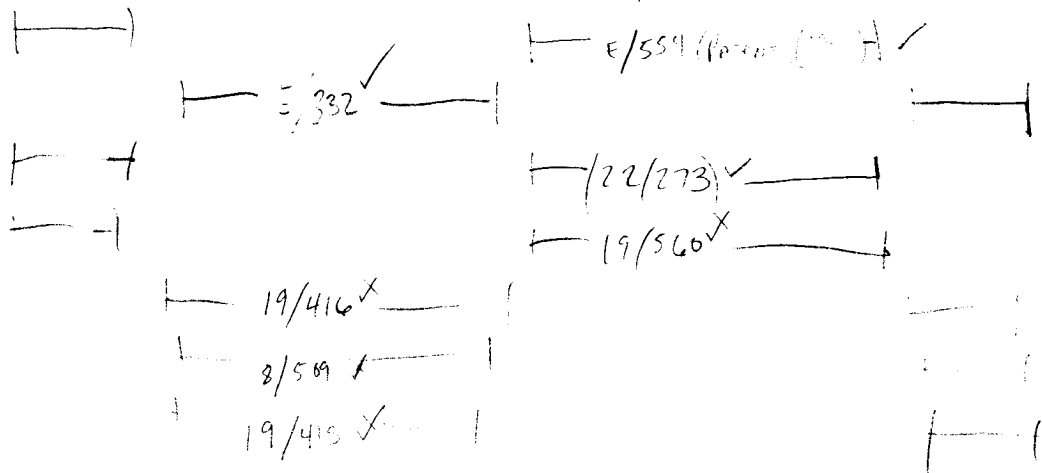 E/559
E/332 ✓
(22/273) ✓
19/560
19/416
8/509